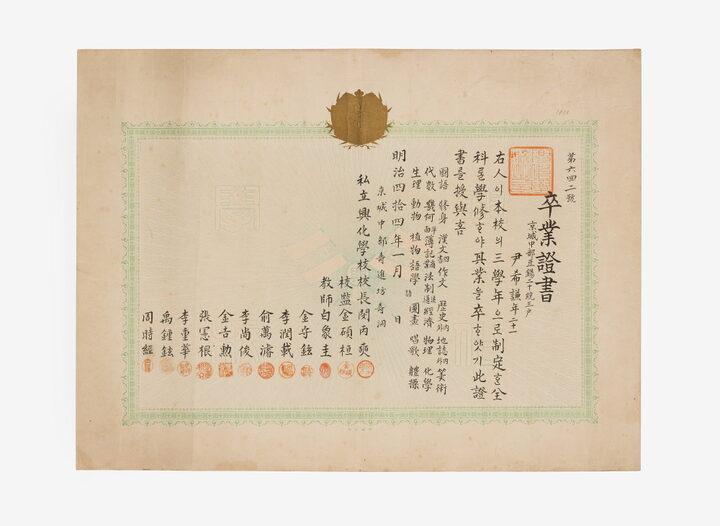 第六四二號
卒業證書
尹希謙 年二十一
右人이本校의三學年으로制定한全
科를學修하야其業을卒하얏기此證
書를授與喜
國語 修身 漢文 作文 歷史 地誌 算術
代數 幾何 簿記 法制 經濟 物理 化學
生理 動物 植物 語學 圖畫 唱歌 體操
明治四拾四年一月 日
京城中部壽進坊壽洞
私立興化學校校長閔丙奭
校監金碩桓
教師白象圭
金守鉉
李潤載
兪萬濬
李尚俊
金吉勳
張憲根
李重華
禹鍾鉉
周時經